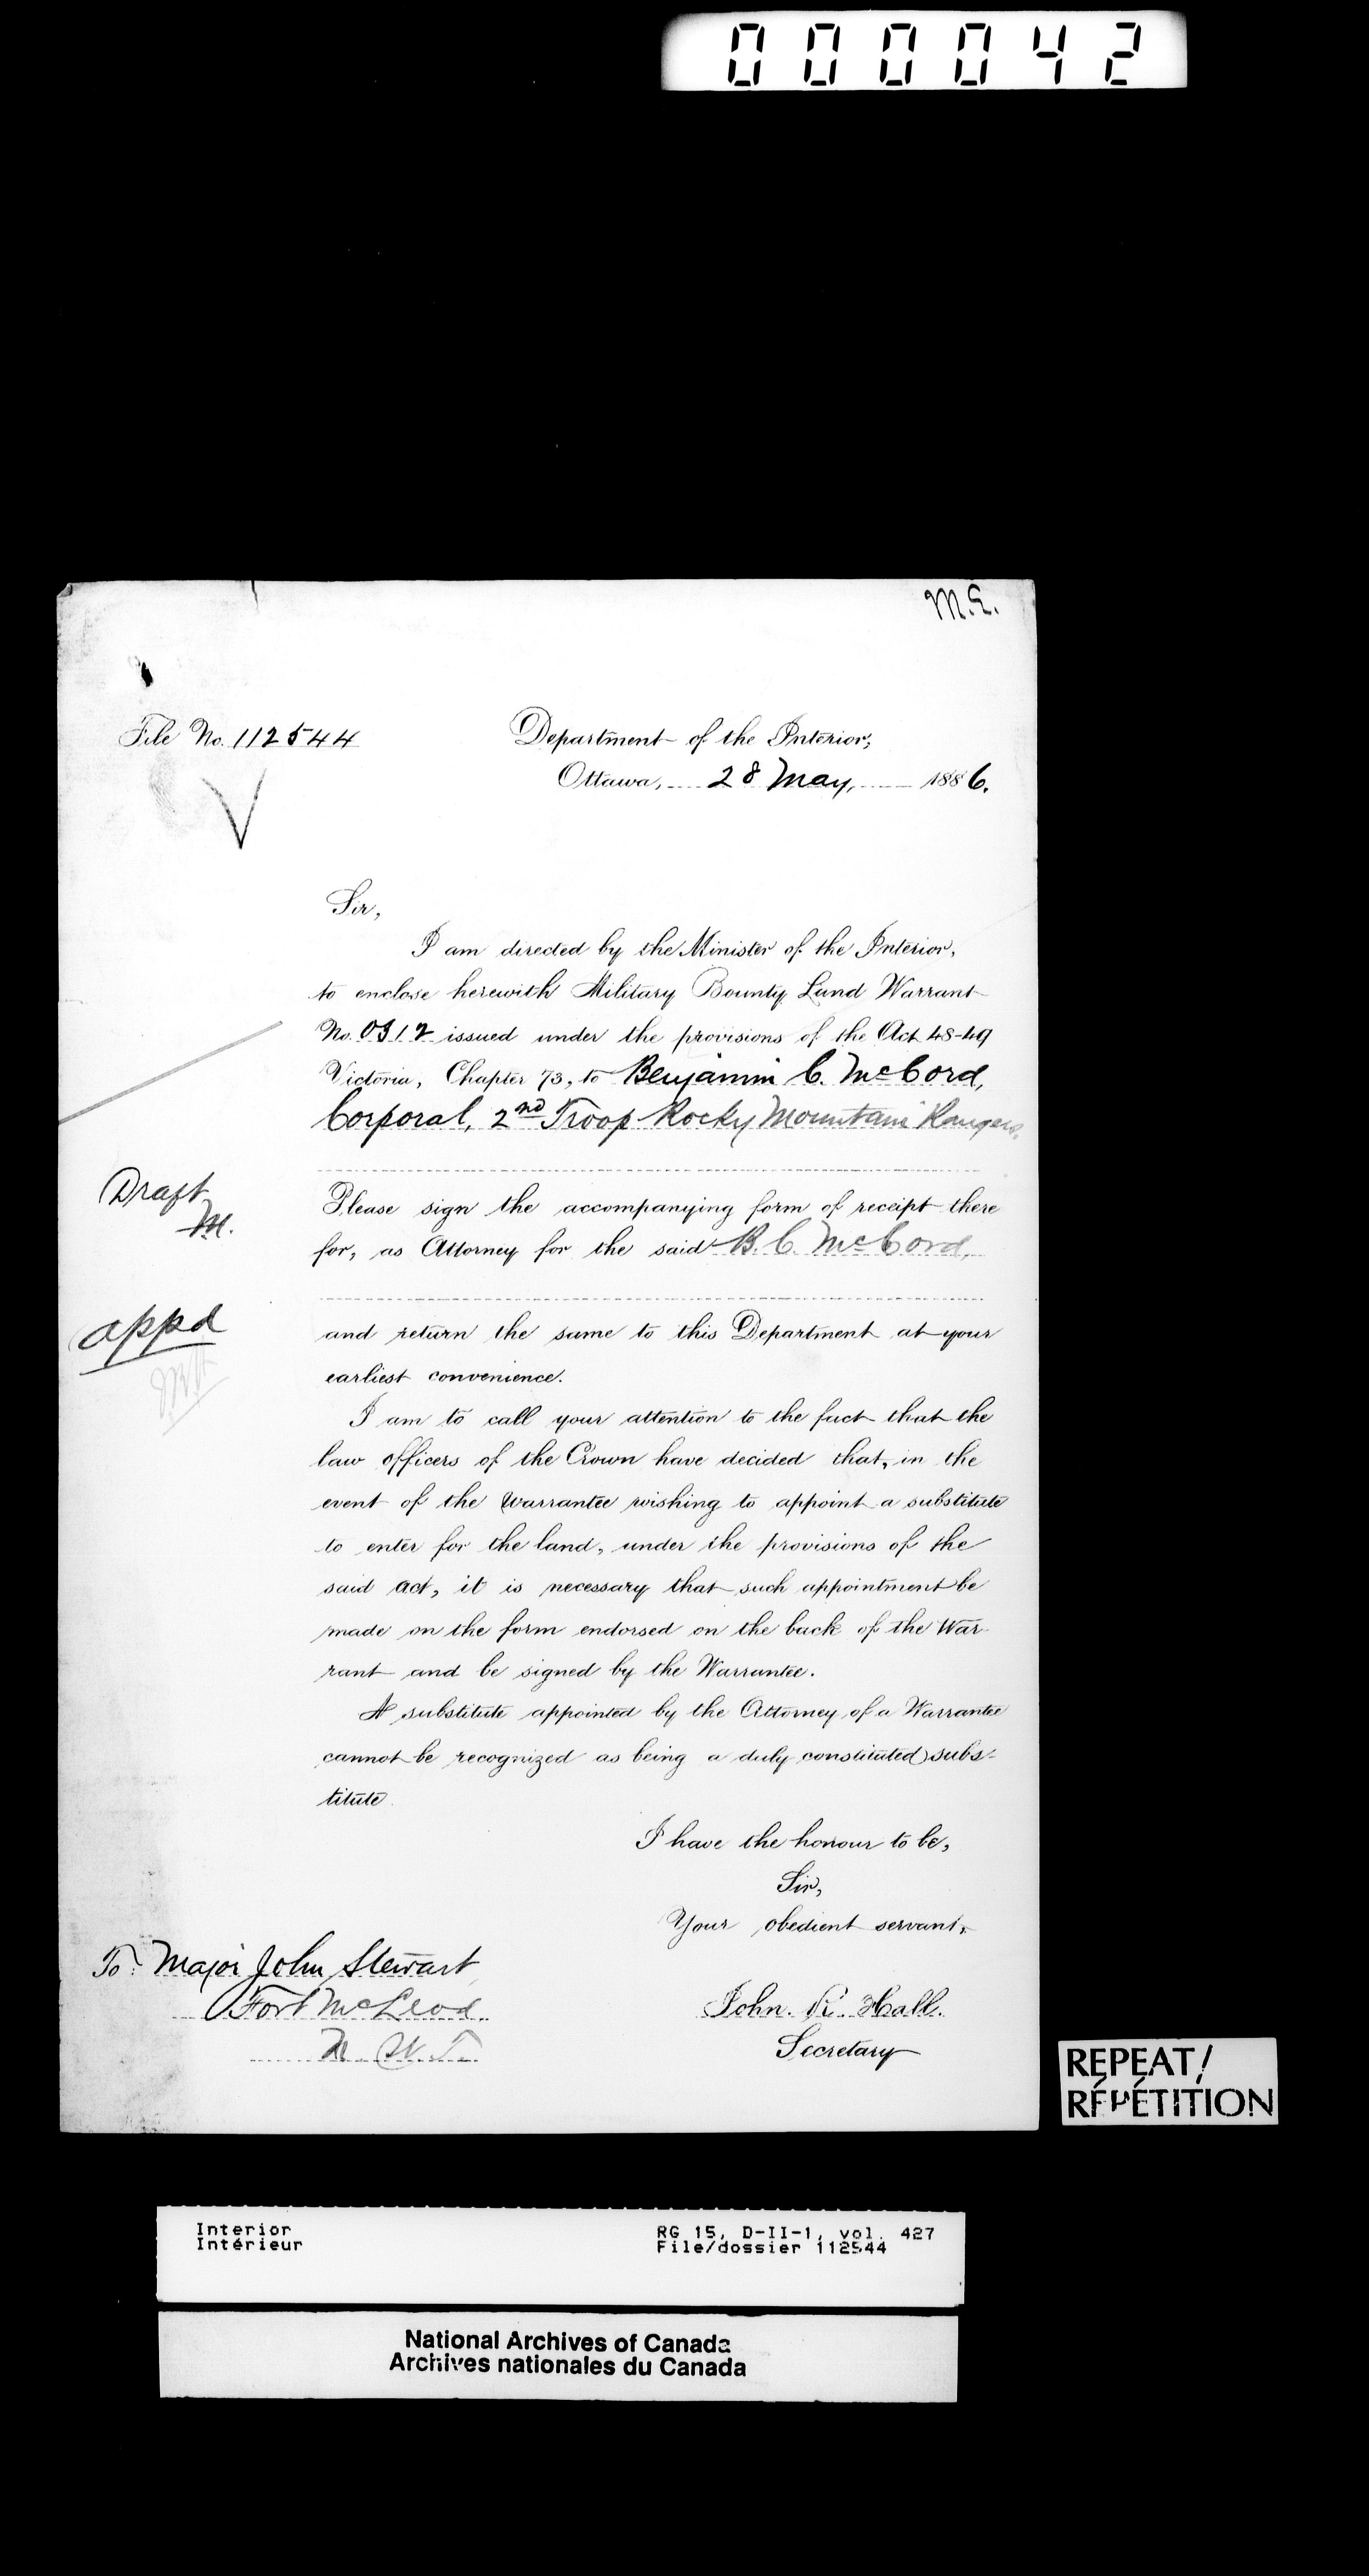 000042
M.E.
File No. 112544
Department of the Interior,
Ottawa, 28 May, 1886.
Sir,
I am directed by the Minister of the Interior,
to enclose herewith Military Bounty Land Warrant
No. 0312 issued under the provisions of the Act 48-49
Victoria, Chapter 73, to Benjamin C. McCord,
Corporal, 2nd Troop Rocky Mountain Rangers,
Draft
M.
Please sign the accompanying form of receipt there
for, as Attorney for the said B. C. McCord,
appd
and return the same to this Department at your
earliest convenience.
I am to call your attention to the fact that the
law officers of the Crown have decided that, in the
event of the Warrantee wishing to appoint a substitute
to enter for the land, under the provisions of the
said Act, it is necessary that such appointment be
made on the form endorsed on the back of the War-
rant and be signed by the Warrantee.
A substitute appointed by the Attorney of a Warrantee
cannot be recognized as being a duly constituted subs-
titute.
I have the honour to be,
Sir,
Your obedient servant,
To: Major John Stewart
Fort McLeod.
N. W. T.
John. R. Hall.
Secretary
REPEAT/
RÉPÉTITION
Interior
Intérieur
RG 15, D-II-1, vol. 427
File/dossier 112544
National Archives of Canada
Archives nationales du Canada